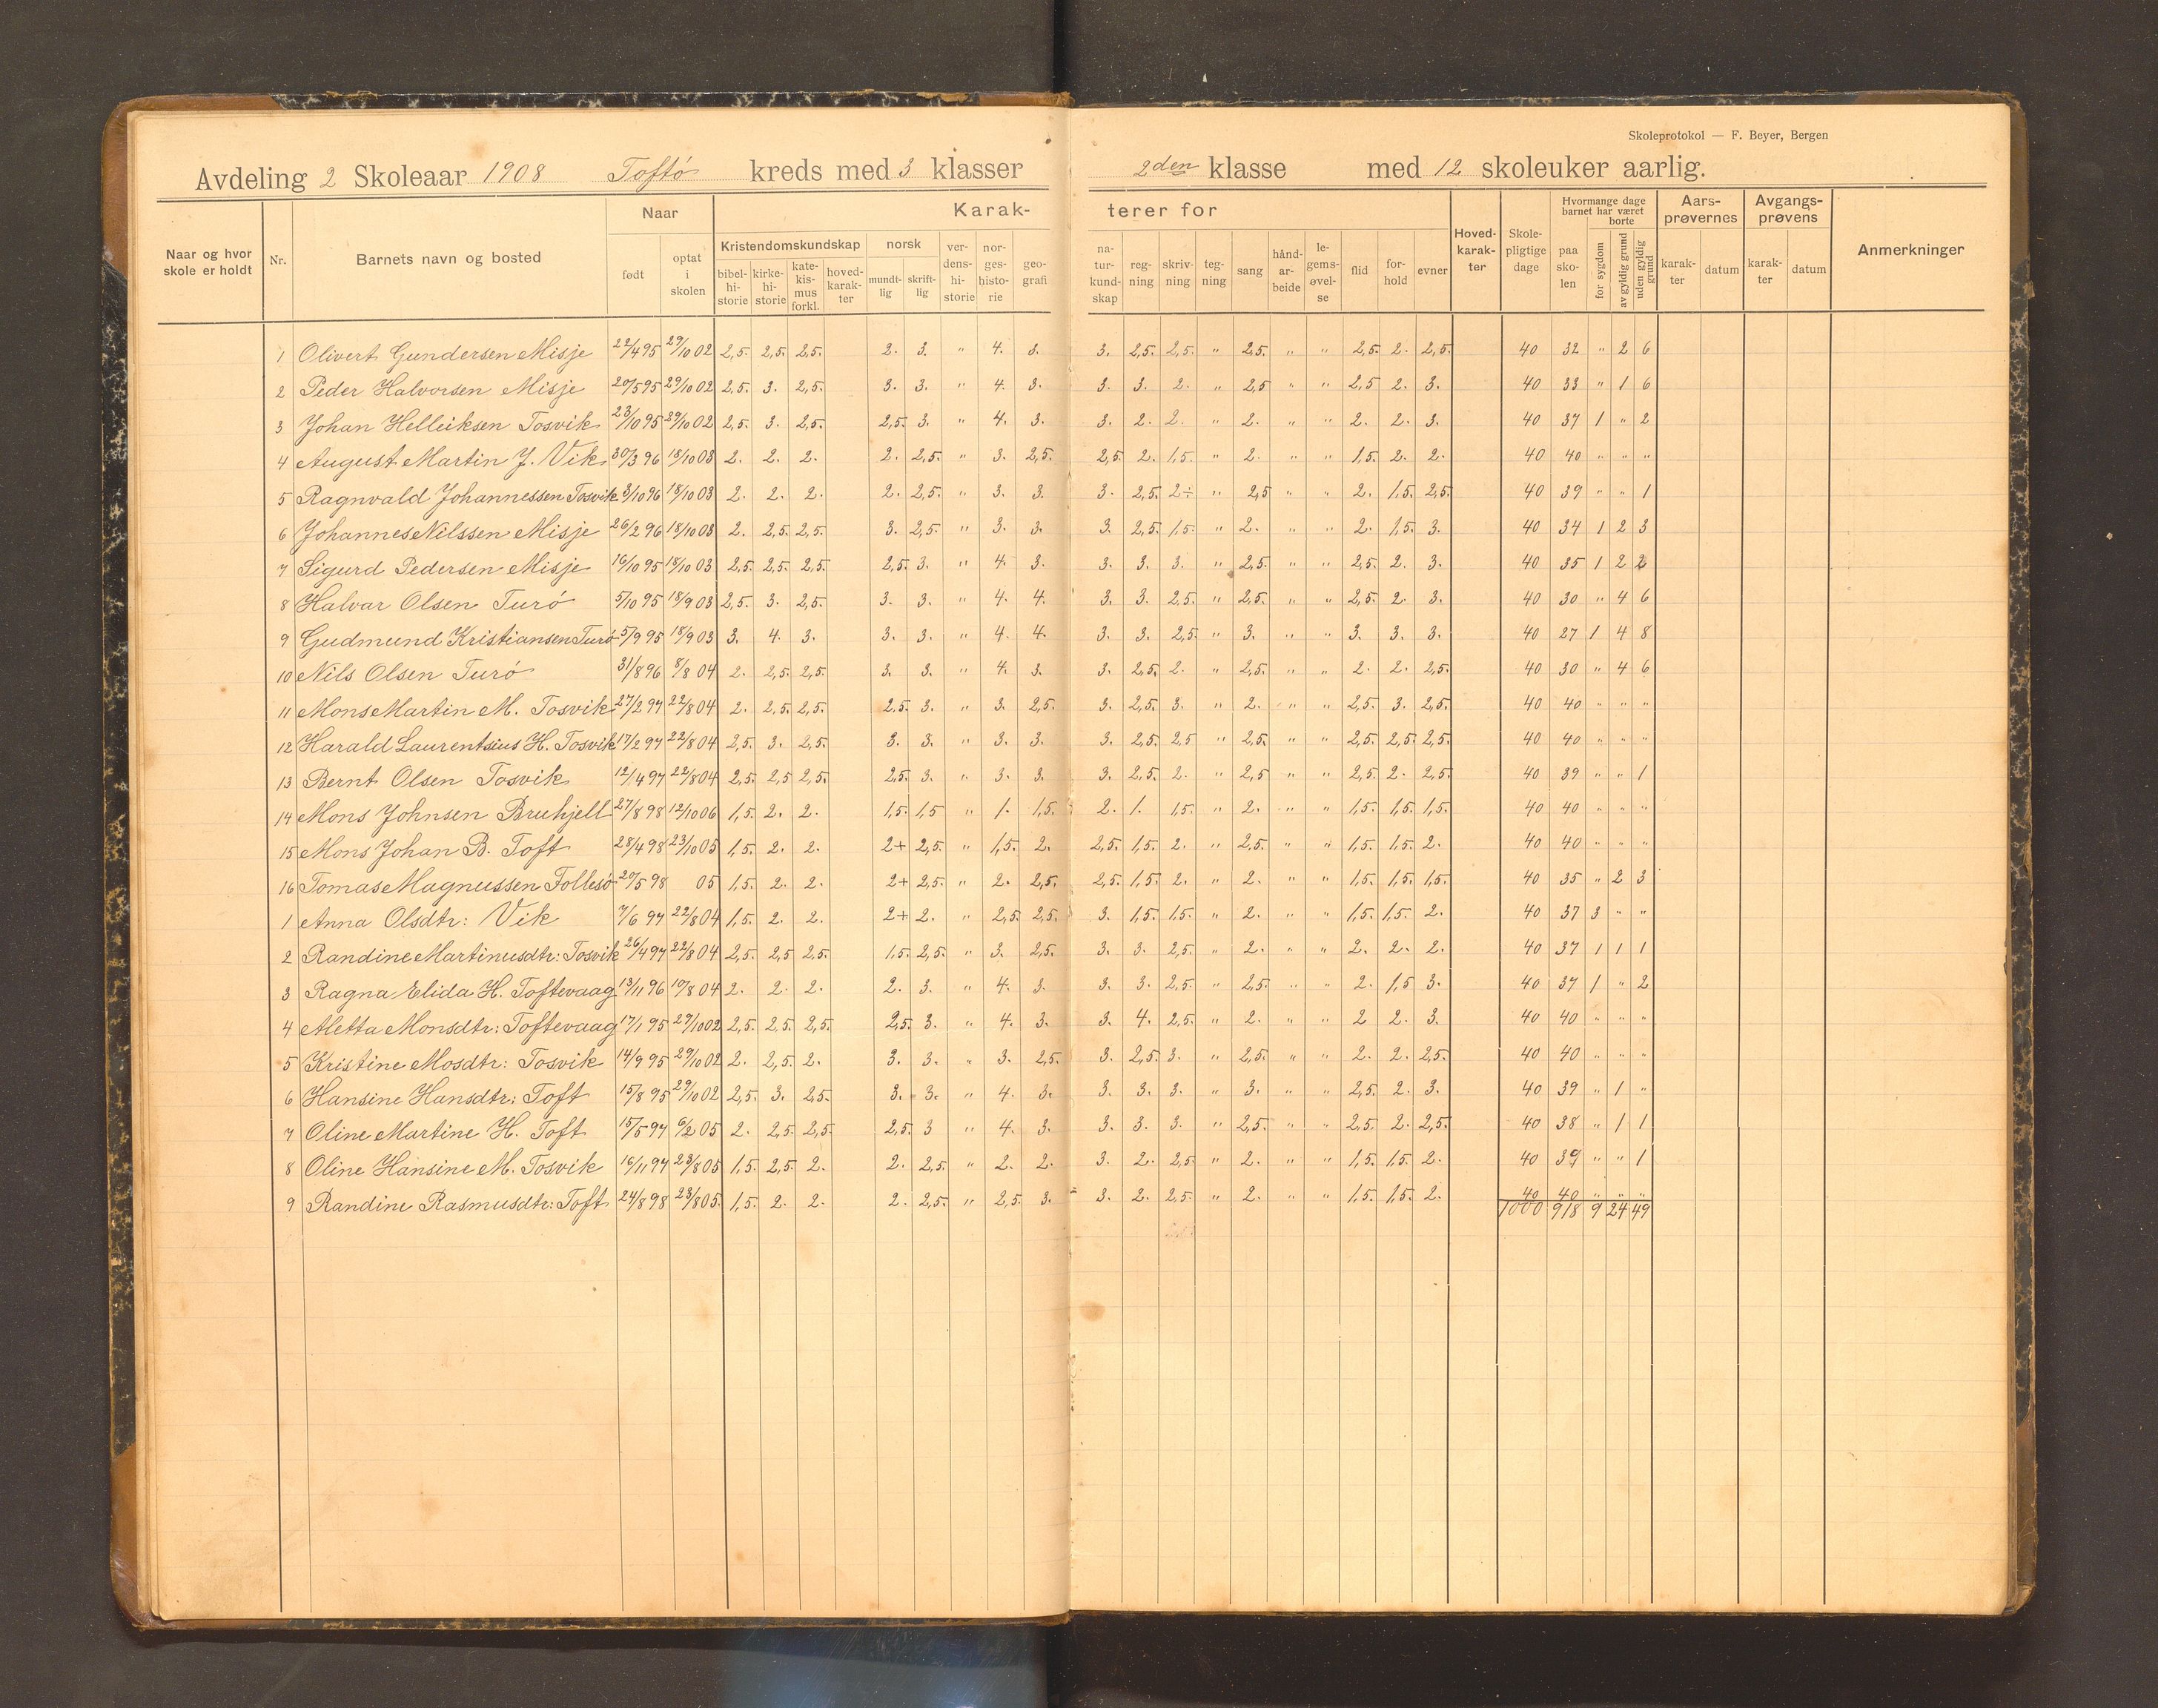 Skoleprotokol — F. Beyer, Bergen
Avdeling 2 Skoleaar 1908 Toftø kreds med 3 klasser 2den klasse med 12 skoleuker aarlig.
Naar og hvor skole er holdt Nr. Barnets navn og bosted Naar født optat i skolen Karak- terer for Kristendomskundskap bibel-hi-storie kirke-hi-storie kate-kis-mus forkl. hoved-karak-ter norsk mundt-lig skrift-lig ver-dens-hi-storie nor-ges-histo-rie geo-grafi na-tur-kund-skap reg-ning skriv-ning teg-ning sang hånd-ar-beide le-gems-øvel-se flid for-hold evner Hoved-karak-ter Skole-pligtige dage Hvormange dage barnet har været paa sko-len borte for sygdom av gyldig grund uden gyldig grund Aars-prøvernes karak-ter datum Avgangs-prøvens karak-ter datum Anmerkninger
1 Olivert Gundersen Misje 22/4 95 29/10 02 2,5. 2,5. 2,5. 2. 3. " 4. 3. 3. 2,5. 2,5. " 2,5. " " 2,5. 2. 2,5. 40 32 " 2 6
2 Peder Halvorsen Misje 20/5 95 29/10 02 2,5. 3. 2,5. 3. 3. " 4. 3. 3. 3. 2. " 2,5 " " 2,5 2. 3. 40 33 " 1 6
3 Johan Helleiksen Tosvik 23/10 95 29/10 02 2,5. 3. 2,5. 2,5. 3. " 4. 3. 3. 2. 2. " 2. " " 2. 2. 3. 40 37 1 " 2
4 August Martin J. Vik 30/3 96 18/10 03 2. 2. 2. 2. 2,5. " 3. 2,5. 2,5. 2. 1,5. " 2. " " 1,5. 2. 2. 40 40 " " "
5 Ragnvald Johannessen Tosvik 3/10 96 18/10 03 2. 2. 2. 2. 2,5. " 3. 3. 3. 2,5. 2÷ " 2,5 " " 2. 1,5. 2,5. 40 39 " " 1
6 Johannes Nilssen Misje 26/2 96 18/10 03 2. 2,5. 2,5. 3. 2,5. " 3. 3. 3. 2,5. 1,5. " 2. " " 2. 1,5. 3. 40 34 1 2 3
7 Sigurd Pedersen Misje 16/10 95 18/10 03 2,5. 2,5. 2,5. 2,5. 3. " 4. 3. 3. 3. 3. " 2,5. " " 2,5. 2. 3. 40 35 1 2 2
8 Halvar Olsen Turø 5/10 95 18/9 03 2,5. 3. 2,5. 3. 3. " 4. 4. 3. 3. 2,5. " 2,5. " " 2,5. 2. 3. 40 30 " 4 6
9 Gudmund Kristiansen Turø 5/9 95 18/9 03 3. 4. 3. 3. 3. " 4. 4. 3. 3. 2,5. " 3. " " 3. 3. 3. 40 27 1 4 8
10 Nils Olsen Turø 31/8 96 8/8 04 2. 2,5. 2,5. 3. 3. " 4. 3. 3. 2,5. 2. " 2,5. " " 2. 2. 2,5. 40 30 " 4 6
11 Mons Martin M. Tosvik 27/2 97 22/8 04 2. 2,5. 2,5. 2,5. 3. " 3. 2,5. 3. 2,5. 3. " 2. " " 2,5. 3. 2,5. 40 40 " " "
12 Harald Laurentsius H. Tosvik 17/2 97 22/8 04 2,5. 3. 2,5. 3. 3. " 3. 3. 3. 2,5. 2,5 " 2,5. " " 2,5. 2,5. 2,5. 40 40 " " "
13 Bernt Olsen Tosvik 12/4 97 22/8 04 2,5. 2,5 2,5. 2,5. 3. " 3. 3. 3. 2,5. 2. " 2,5 " " 2,5. 2. 2,5. 40 39 " " 1
14 Mons Johnsen Bruhjell 27/8 98 12/10 06 1,5. 2. 2. 1,5. 1,5 " 1. 1,5. 2. 1. 1,5. " 2. " " 1,5. 1,5. 1,5. 40 40 " " "
15 Mons Johan B. Toft 28/4 98 23/10 05 1,5. 2. 2. 2+ 2,5. " 1,5. 2. 2,5. 1,5. 2. " 2,5. " " 1,5. 1,5. 2. 40 40 " " "
16 Tomas Magnussen Follesø 20/5 98 05 1,5. 2. 2. 2+ 2,5. " 2. 2,5. 2,5. 1,5. 2. " 2. " " 1,5. 1,5. 1,5. 40 35 " 2 3
1 Anna Olsdtr: Vik 7/6 97 22/8 04 1,5. 2. 2. 2+ 2. " 2,5. 2,5. 3. 1,5. 1,5. " 2. " " 1,5. 1,5. 2. 40 37 3 " "
2 Randine Martinusdtr: Tosvik 26/4 97 22/8 04 2,5. 2,5 2,5. 1,5. 2,5. " 3. 2,5. 3. 3. 2,5. " 2. " " 2. 2. 2. 40 37 1 1 1
3 Ragna Elida H. Toftevaag 13/11 96 10/8 04 2. 2. 2. 2. 3. " 4. 3. 3. 3. 2,5. " 2,5. " " 2. 1,5 3. 40 37 1 " 2
4 Metta Monsdtr: Toftevaag 17/1 95 29/10 02 2,5. 2,5. 2,5. 2,5. 3. " 4. 3. 3. 4. 2,5. " 2. " " 2 2. 3. 40 40 " " "
5 Kristine Mosdtr: Tosvik 14/9 95 29/10 02 2. 2,5. 2. 3. 3. " 3. 2,5. 3. 2,5. 3. " 2,5. " " 2. 2. 2,5. 40 40 " " "
6 Hansine Hansdtr: Toft 15/8 95 29/10 02 2,5. 3. 2,5. 3. 3. " 4. 3. 3. 3. 3. " 3. " " 2,5. 2. 3. 40 39 " 1 "
7 Oline Martine H. Toft 15/5 97 6/2 05 2. 2,5. 2,5. 2,5. 3 " 4. 3. 3. 3. 3. " 2,5. " " 2,5. 2. 2,5. 40 38 " 1 1
8 Oline Hansine M. Tosvik 16/11 97 23/8 05 1,5. 2,5. 2. 2. 2,5. " 2. 2. 3. 2. 2,5. " 2. " " 1,5. 1,5. 2. 40 39 " " 1
9 Randine Rasmusdtr: Toft 24/8 98 23/8 05. 1,5. 2. 2. 2. 2,5. " 2,5. 3. 3. 2. 2,5. " 2. " " 1,5. 1,5. 2. 40 40 " " "
1000 918 9 24 49